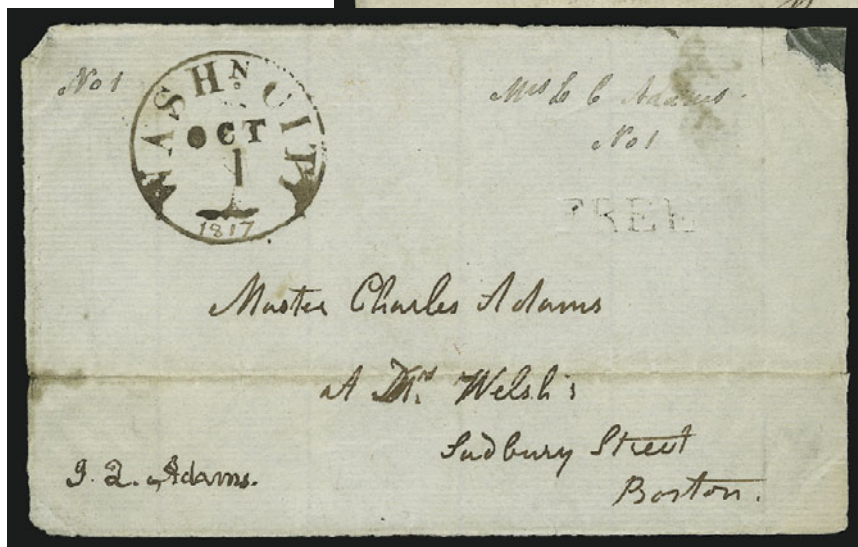 No 1
WASHN. CITY
OCT
1
1817
Mrs L C Adams.
No 1
FREE
Master Charles Adams
At Welsh's
Sudbury Street
Boston.
J. Q. Adams.